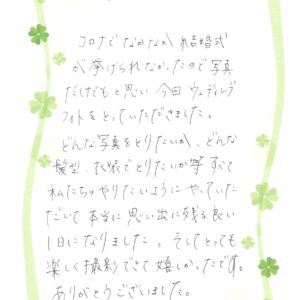 コロナでなかなか結婚式
が挙げられなかったので写真
だけでもと思い今回ウェディング
フォトをとっていただきました。
どんな写真をとりたいか、どんな
髪型、衣装でとりたいか等すべて
私たちのやりたいようにやっていた
だいて本当に思い出に残る良い
1日になりました。そしてとっても
楽しく撮影できて嬉しかったです。
ありがとうございました。